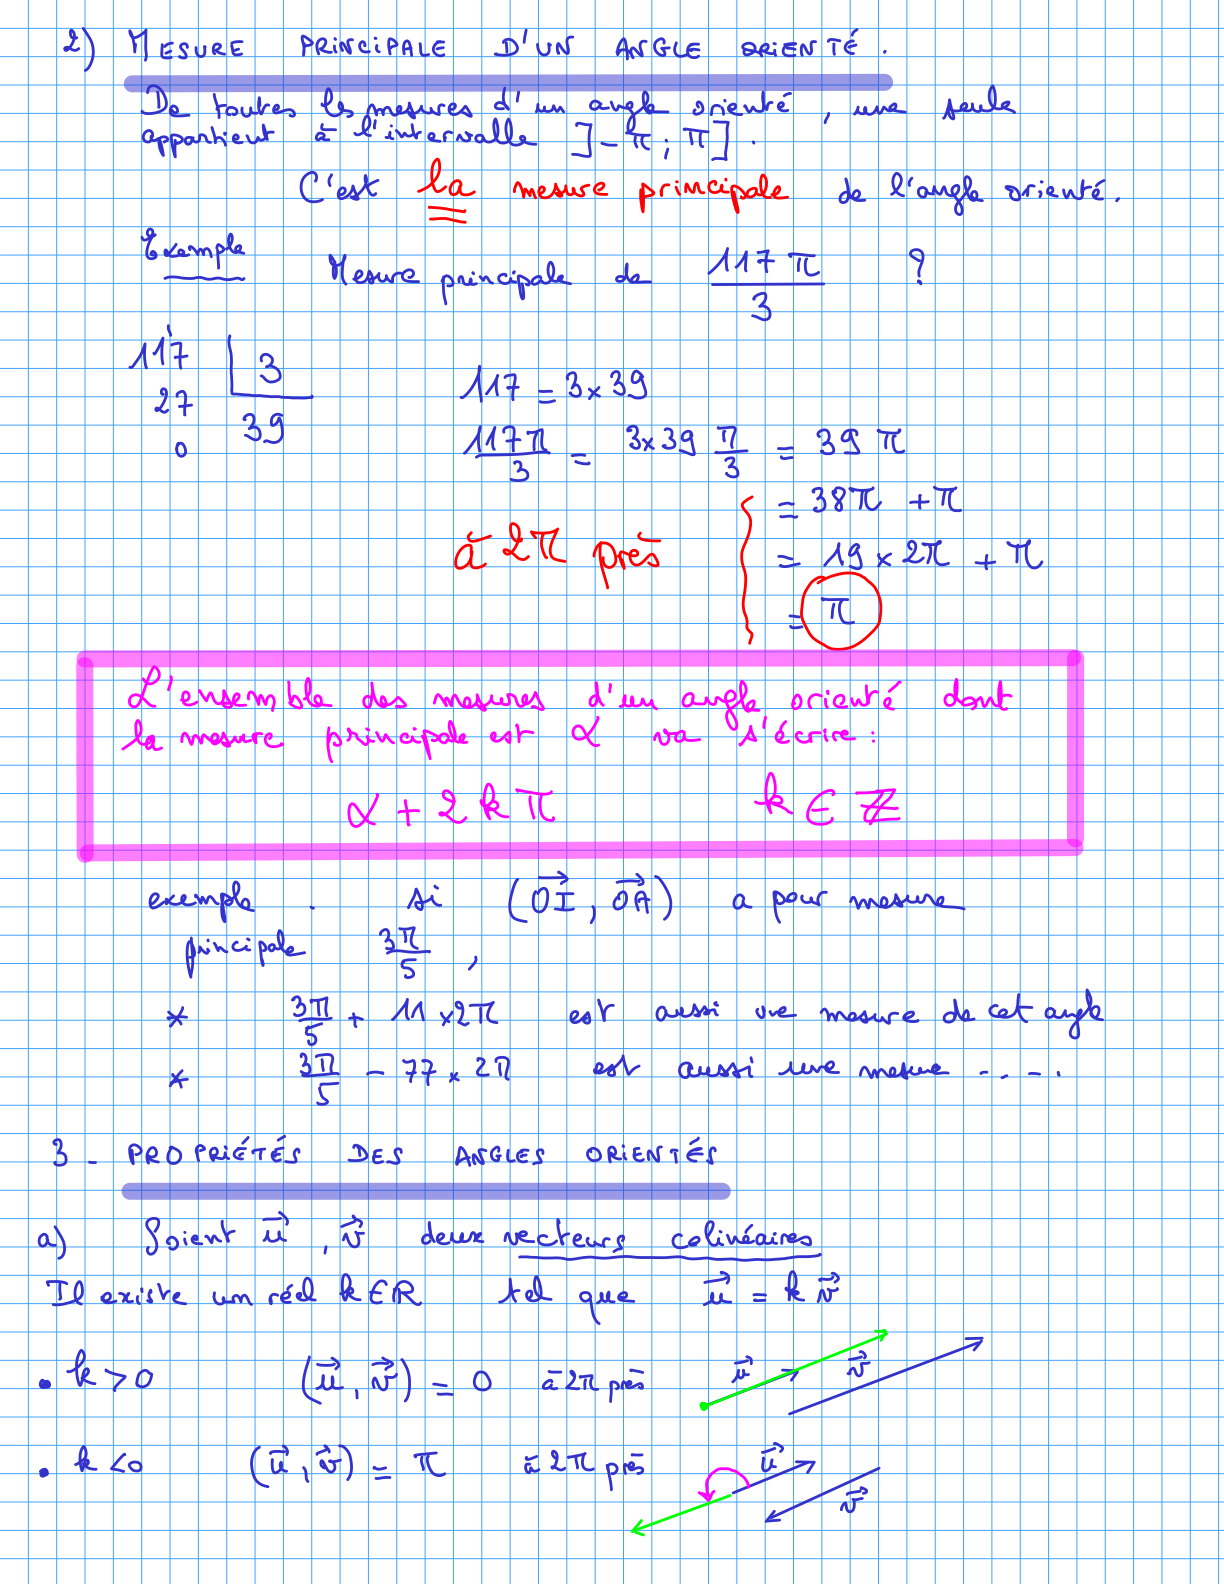 2) MESURE PRINCIPALE D'UN ANGLE ORIENTÉ.
De toutes les mesures d'un angle orienté, une seule
appartient à l'intervalle ]-π ; π].
C'est la mesure principale de l'angle orienté.
Exemple Mesure principale de 117π/3 ?
117 | 3
27 39
0
117 = 3×39
117π/3 = 3×39 π/3 = 39π
= 38π + π
à 2π près = 19 × 2π + π
= π
L'ensemble des mesures d'un angle orienté dont
la mesure principale est α va s'écrire :
α + 2kπ k ∈ ℤ
exemple . si (OI→, OA→) a pour mesure
principale 3π/5 ,
* 3π/5 + 11×2π est aussi une mesure de cet angle
* 3π/5 - 77×2π est aussi une mesure -.-.
3 - PROPRIÉTÉS DES ANGLES ORIENTÉS
a) Soient u→, v→ deux vecteurs colinéaires
Il existe un réel k∈R tel que u→ = k v→
• k > 0 (u→, v→) = 0 à 2π près u→ v→
• k < 0 (u→, v→) = π à 2π près u→ v→